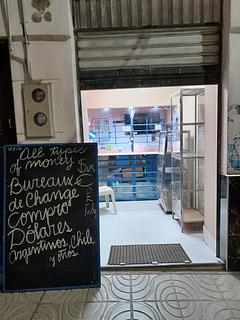 All types
of money
Bureaux
de Change
Compro
Dólares
Argentinos, Chile
y otros
$us
€